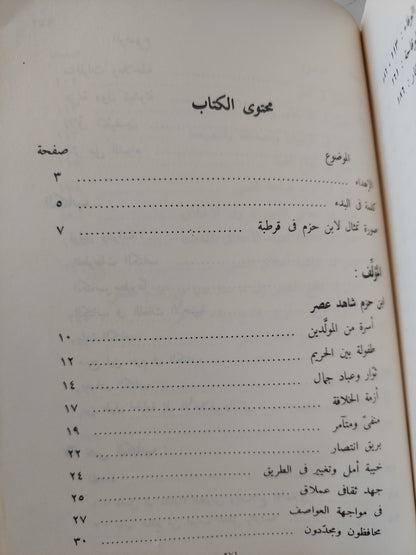 محتوى الكتاب
الموضوع صفحة
الإهداء ........ ٣
كلمة فى البدء ........ ٥
صورة تمثال لابن حزم فى قرطبة ........ ٧
المؤلِّف :
ابن حزم شاهد عصر
أسرة من المولَّدين ........ ١٠
طفولة بين الحريم ........ ١٢
ثوار وعباد جمال ........ ١٤
أزمة الخلافة ........ ١٧
منفىّ ومتآمر ........ ١٩
بريق انتصار ........ ٢٢
خيبة أمل وتغيير فى الطريق ........ ٢٤
جهد ثقافى عملاق ........ ٢٥
فى مواجهة العواصف ........ ٢٧
محافظون ومجدّدون ........ ٣٠